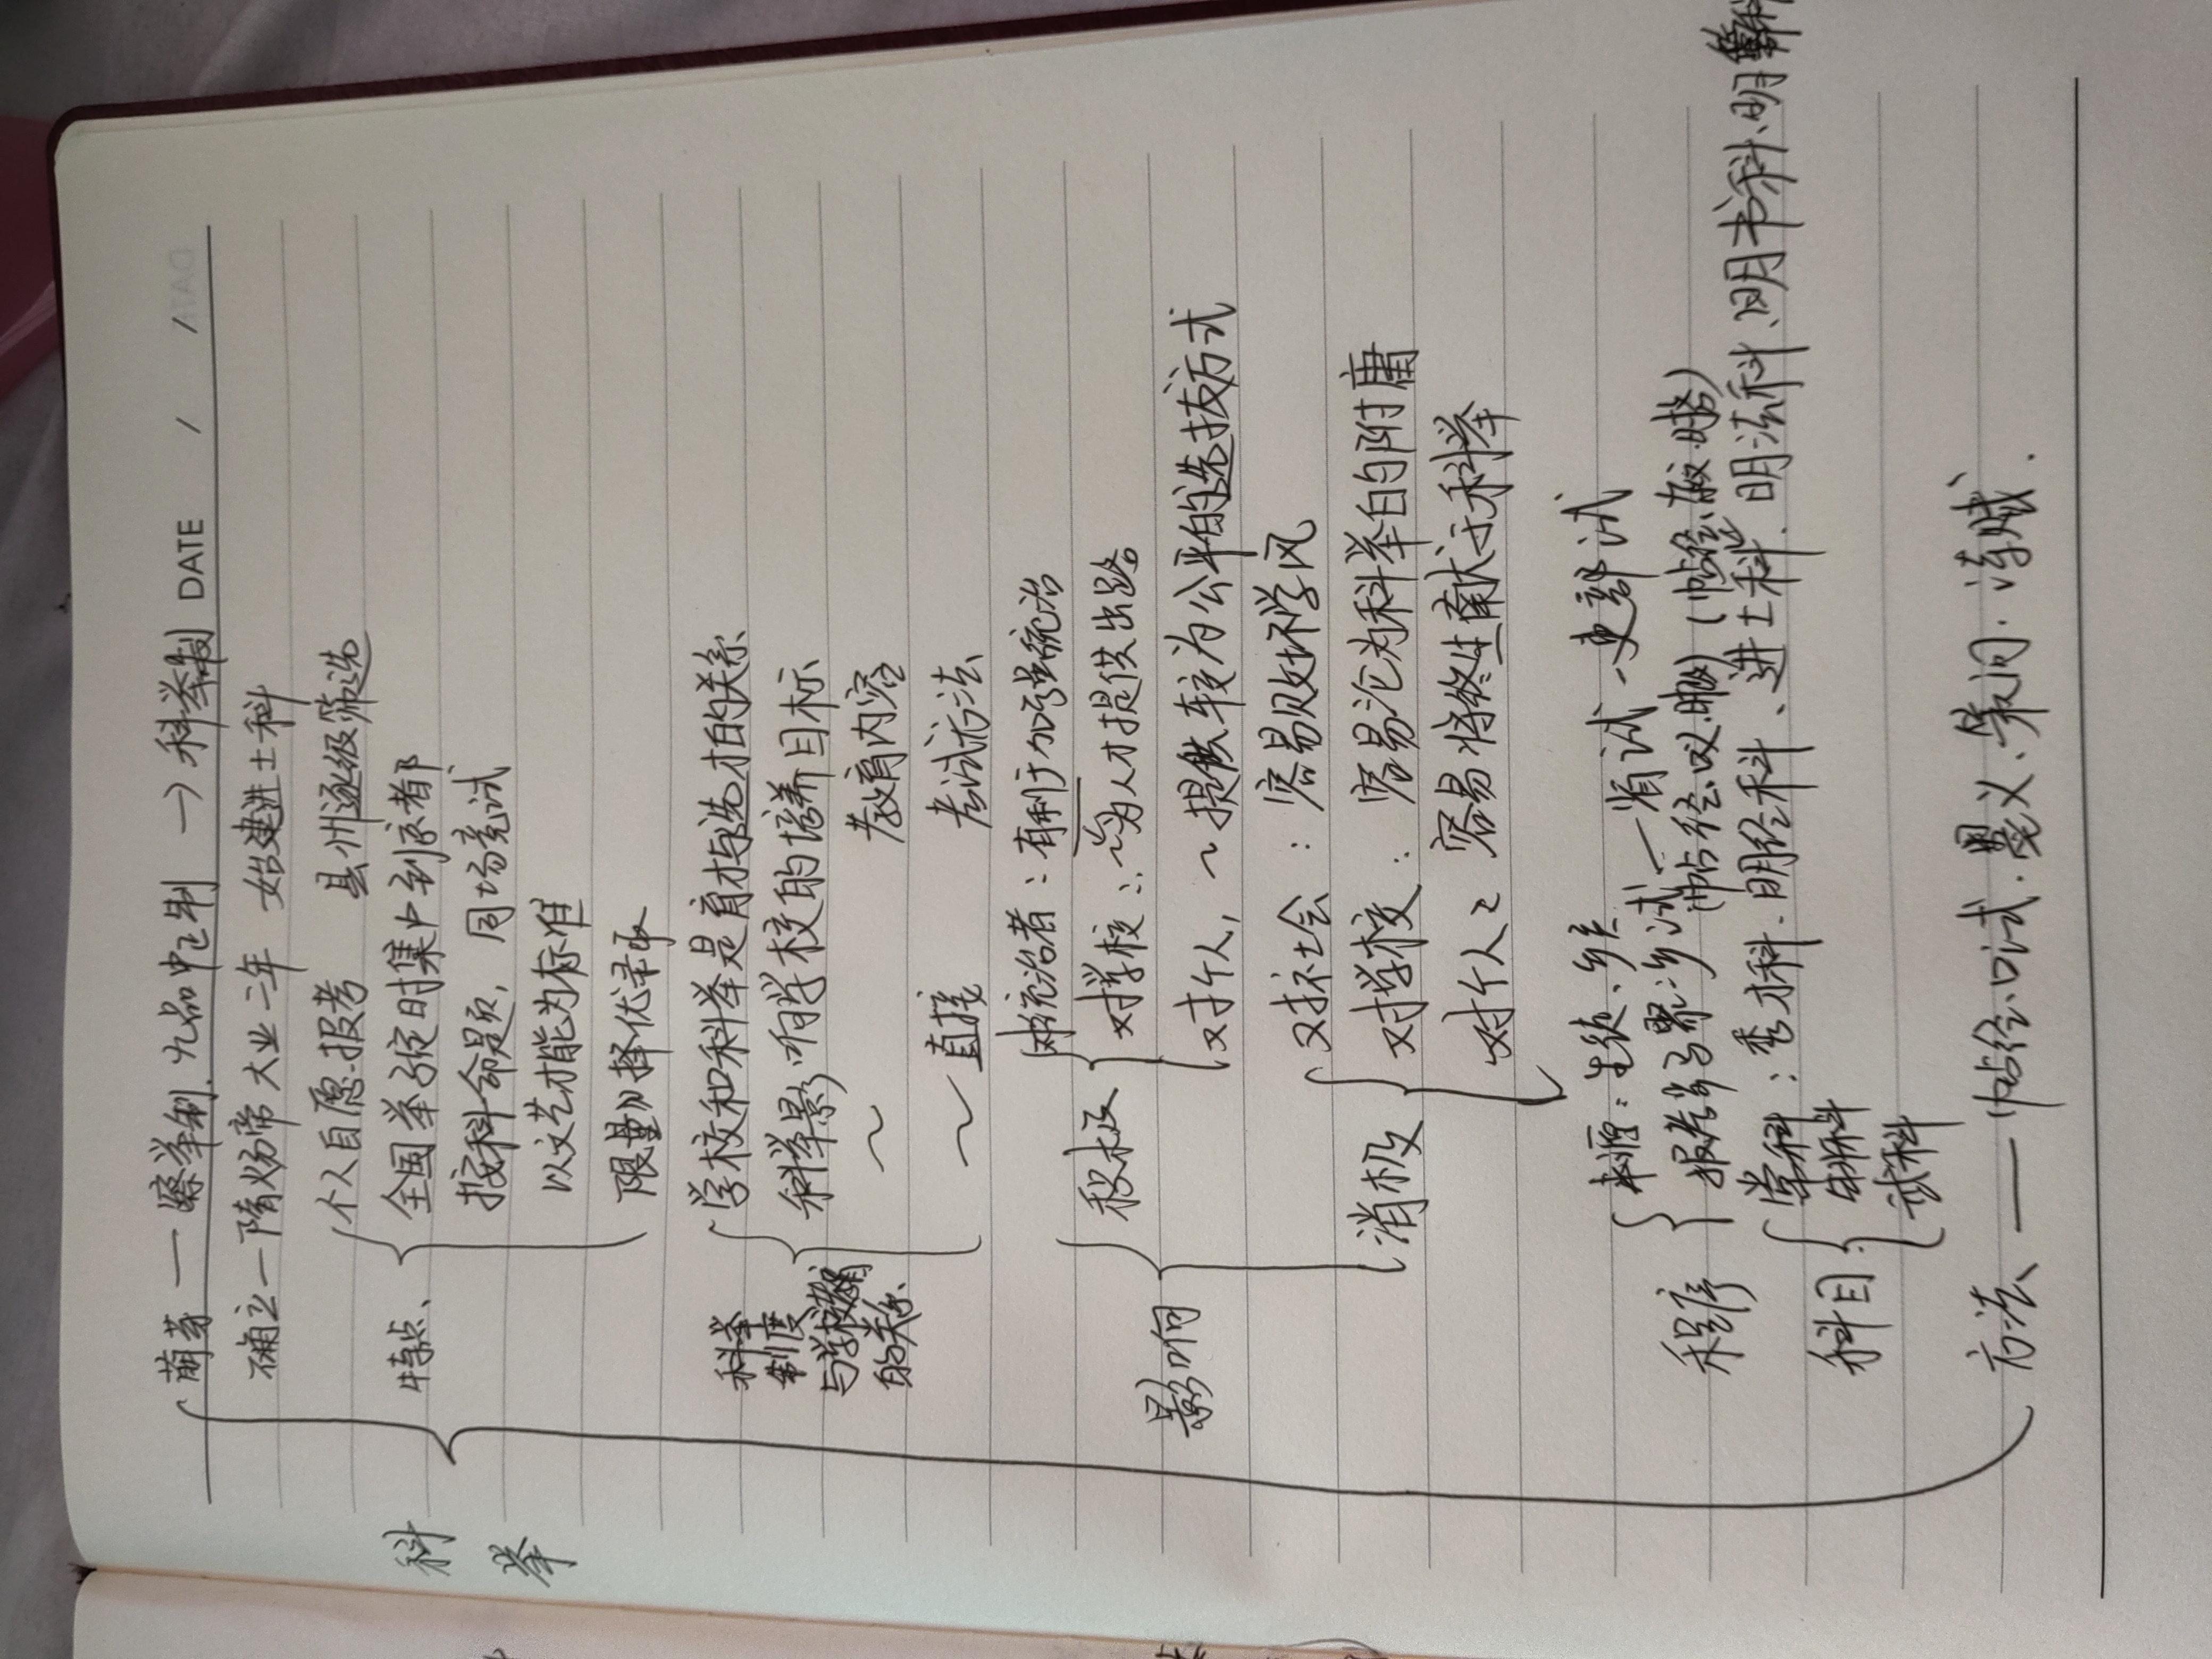 DATE / /
萌芽—察举制、九品中正制 → 科举制
确立—隋炀帝大业二年 始建进士科
科举
特点、
个人自愿报考 县州逐级筛选
全国举子定时集中到京都
按科命题，同场竞试
以文艺才能为标准
限量择优录取
科举制度与学校教育的关系
学校和科举是育才与选才的关系
科举影响学校的培养目标
～ 教育内容
～直接 考试方法
影响
积极
对统治者：有利于加强统治
对学校：～为人才提供出路
对个人，～提供较为公平的选拔方式
消极
对社会：容易败坏学风
对学校：容易沦为科举的附庸
对个人：容易将终生献于科举
程序
来源：生徒、乡贡
乡试—省试—吏部试
科目：
常科：秀才科、明经科、进士科、明法科、明书科、明算科
武科
方法——帖经、口试、墨义、策问、诗赋.